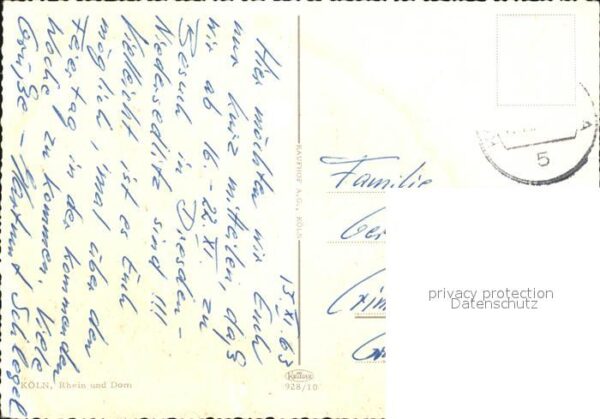 15. XI. 63
Hier möchten wir Euch
nur kurz mitteilen, daß
wir ab 16 - 22. XI. zu
Besuch in Dresden -
Niedersedlitz sind !!!
Vielleicht ist es Euch
möglich, 'mal über den
Feiertag in der kommenden
Woche zu kommen. Viele
Grüße - Hartmut Schlegel
Familie
5
KAUFHOF A.G., KÖLN
KÖLN, Rhein und Dom
928/10
privacy protection
Datenschutz